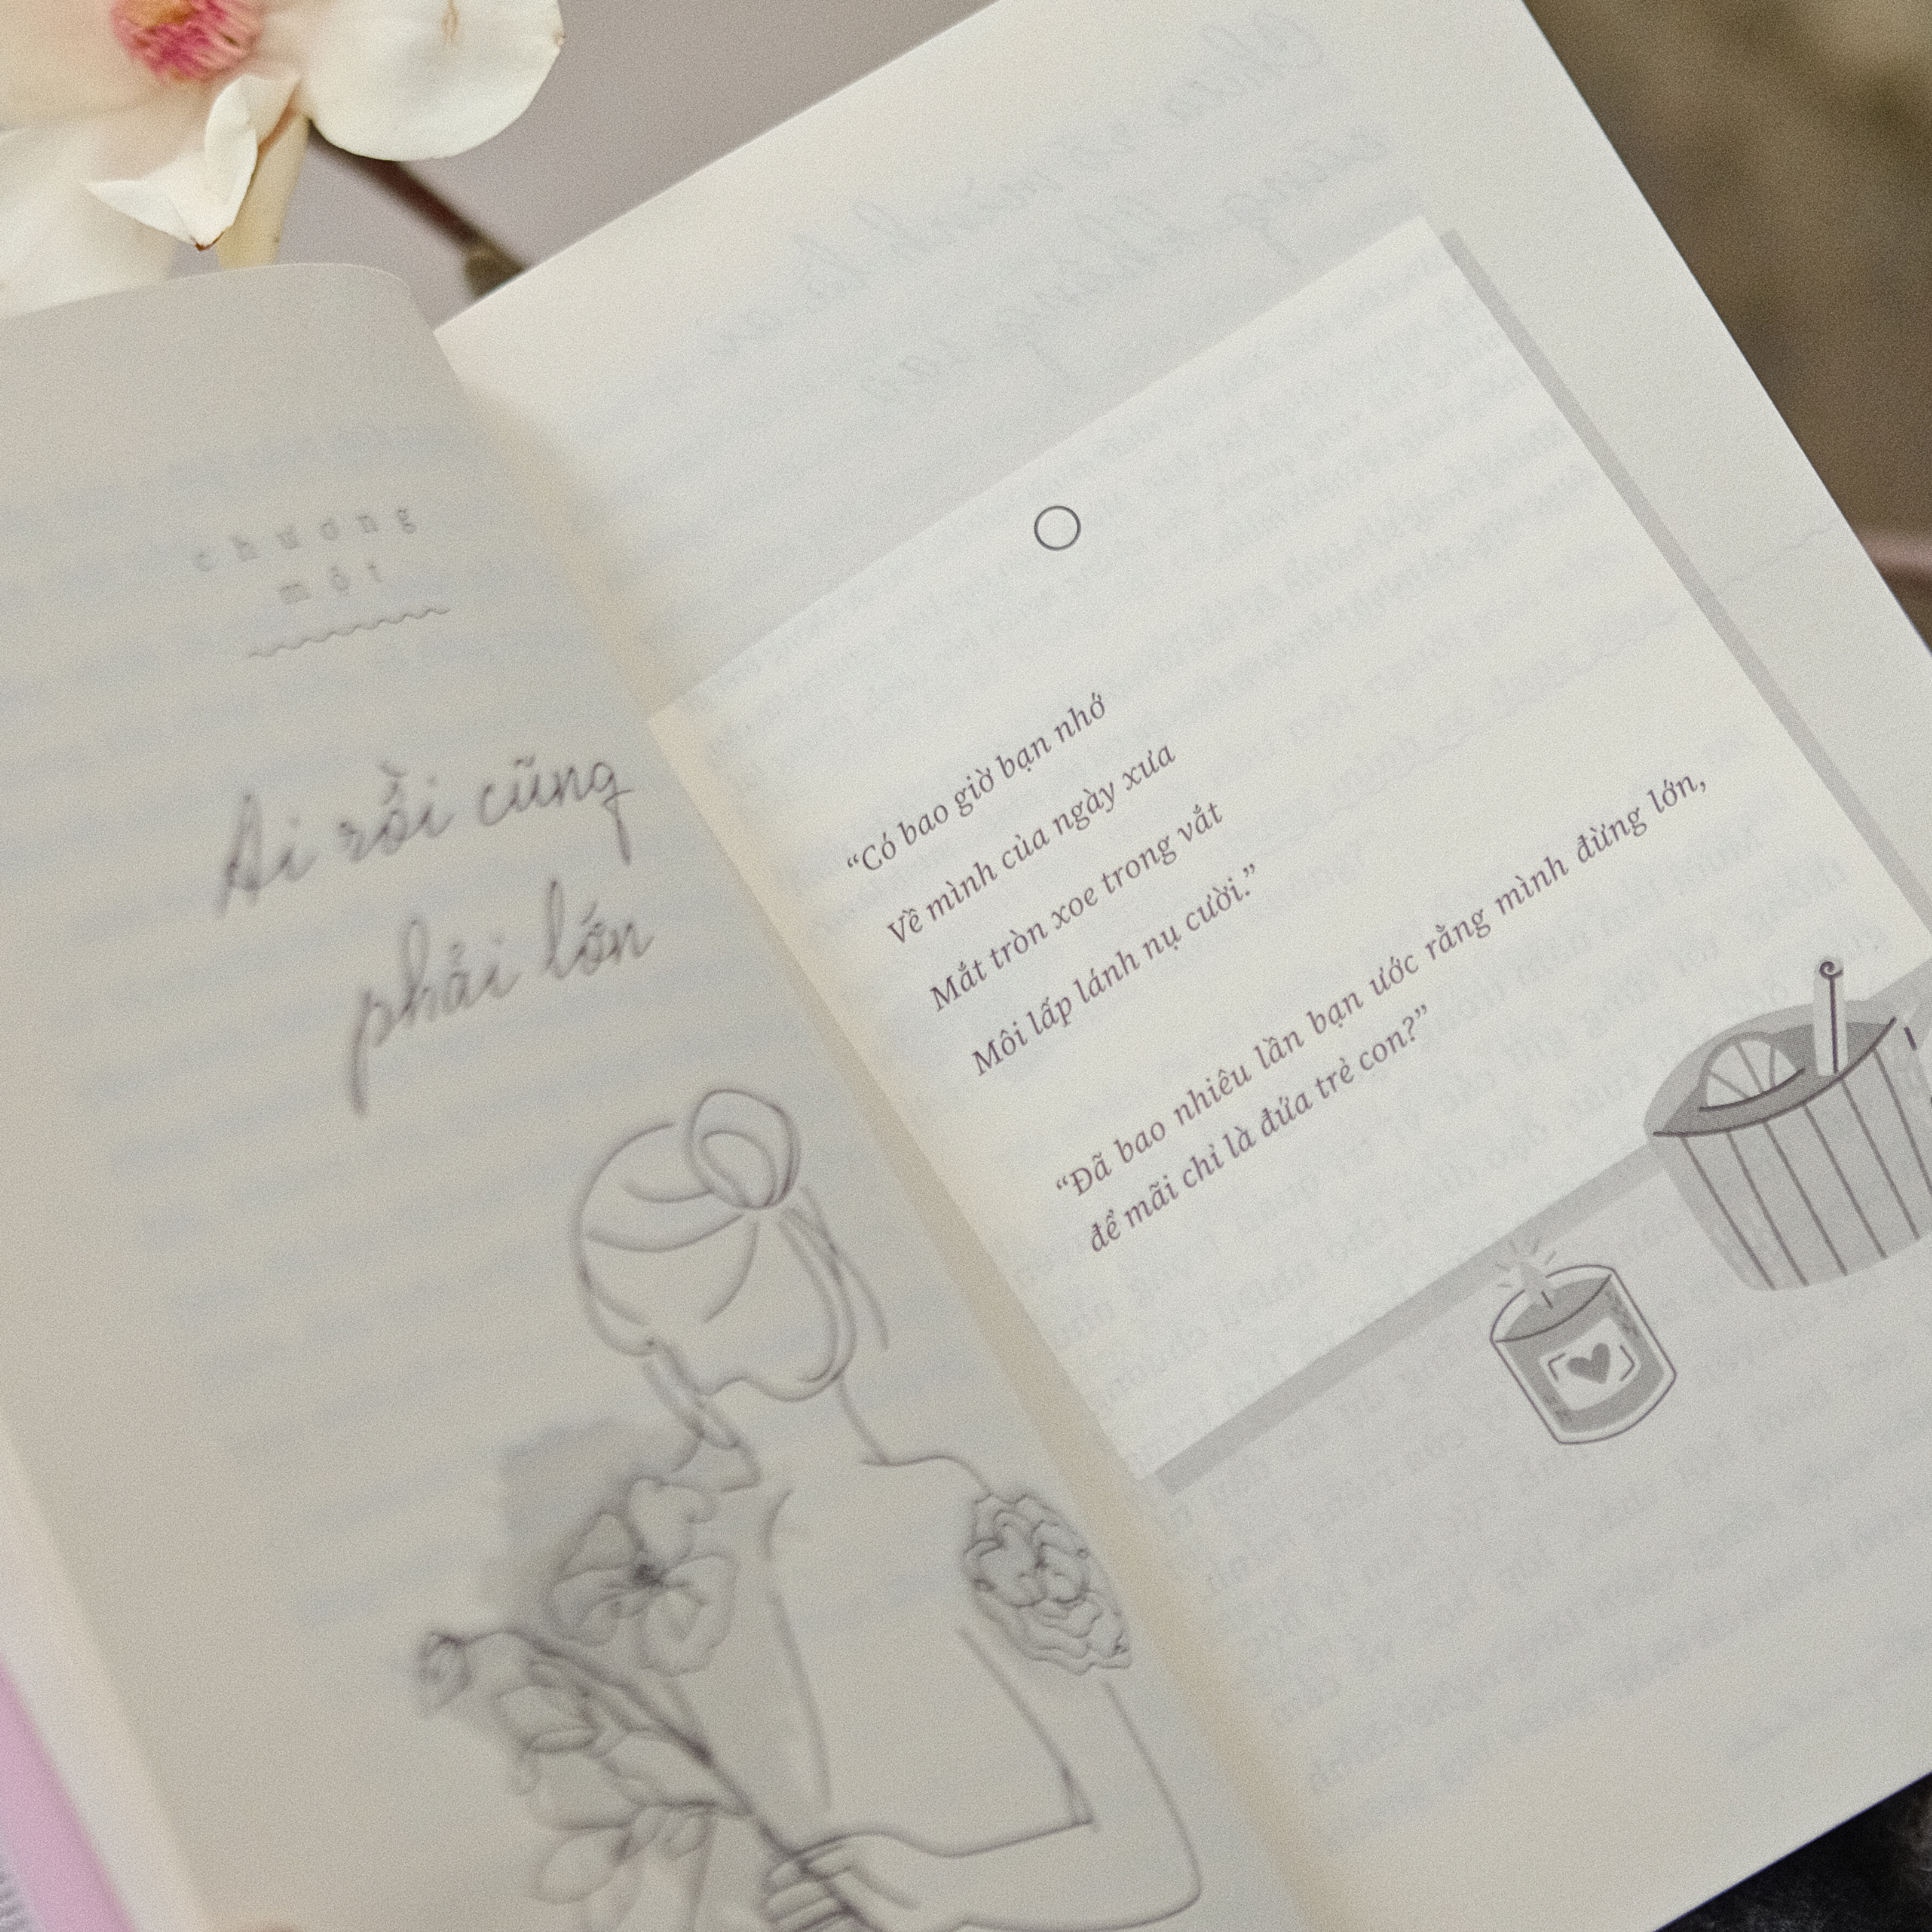 chương
một
Ai rồi cũng
phải lớn
“Có bao giờ bạn nhớ
Về mình của ngày xưa
Mắt tròn xoe trong vắt
Môi lấp lánh nụ cười.”
“Đã bao nhiêu lần bạn ước rằng mình đừng lớn,
để mãi chỉ là đứa trẻ con?”